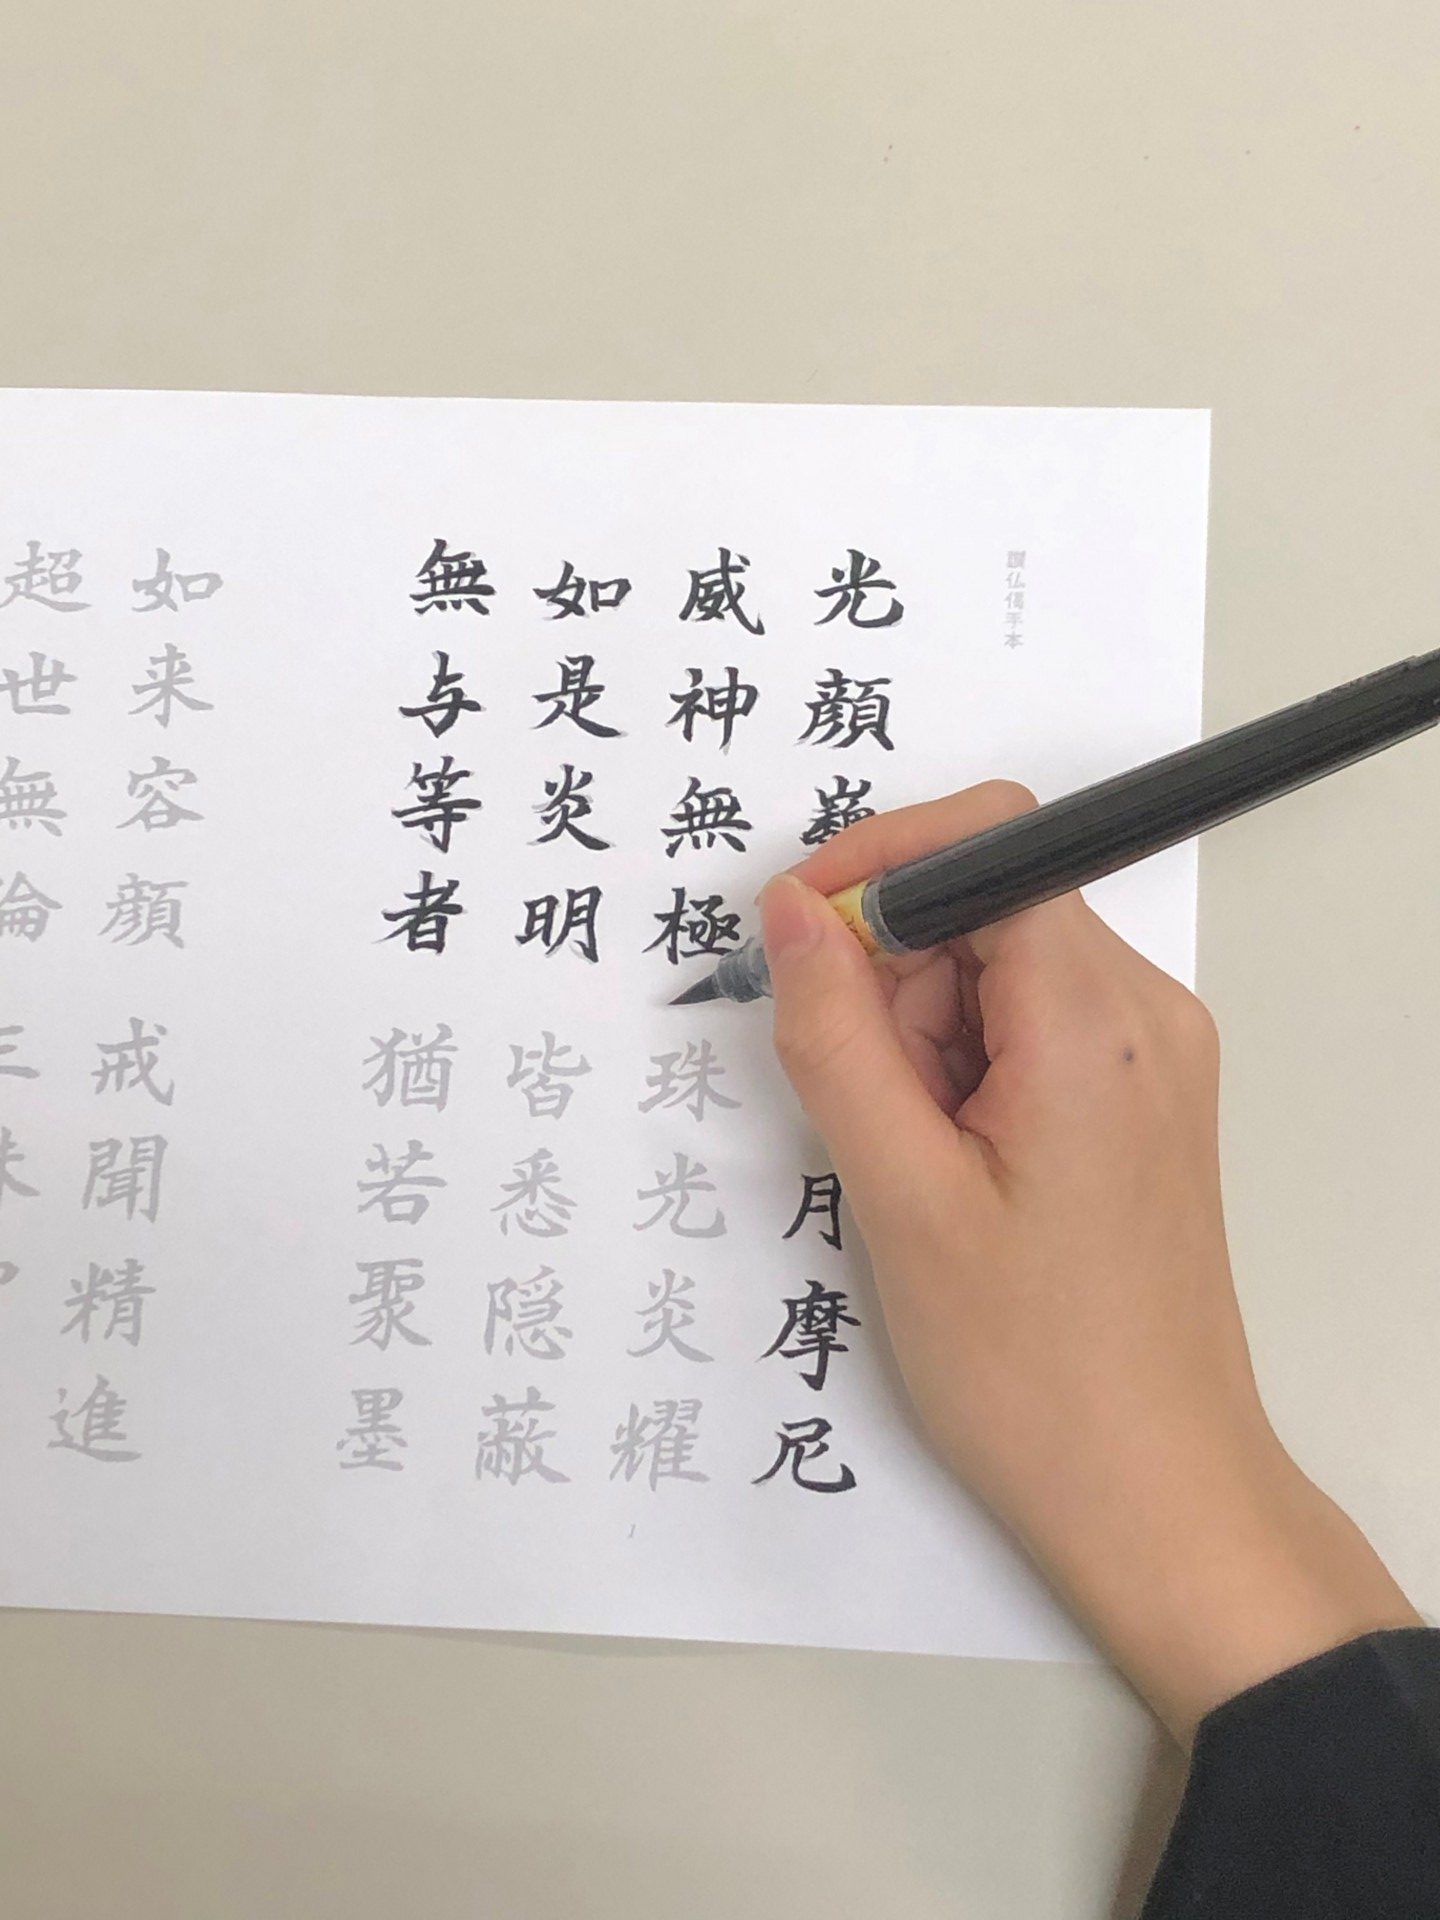 讃仏偈手本
光顔巍 月摩尼
威神無極 珠光炎耀
如是炎明 皆悉隠蔽
無与等者 猶若聚墨
如来容顔 戒聞精進
超世無倫
1